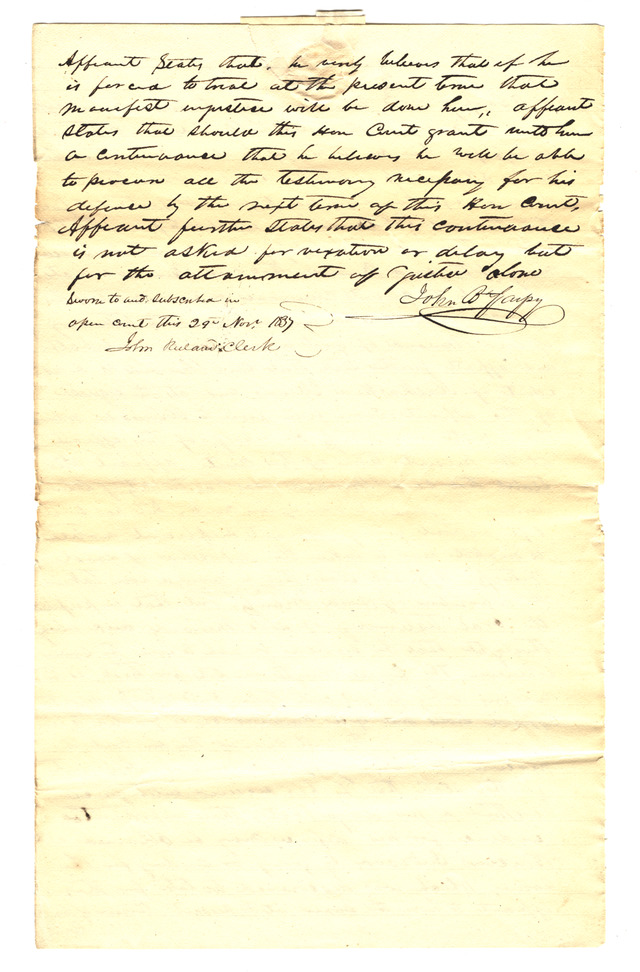 Affiant States that he verily believes that if he
is forced to trial at the present term that
manifest injustice will be done him,, affiant
states that should this Hon Court grant unto him
a continuance that he believes he will be able
to procure all the testimony necessary for his
defense by the next term of this Hon Court,
Affiant further states that this continuance
is not asked for vexation or delay but
for the attainment of Justice alone
John Bte
Sworn to and subscribed in
open court this 29th Novr 1837
John Ruland Clerk